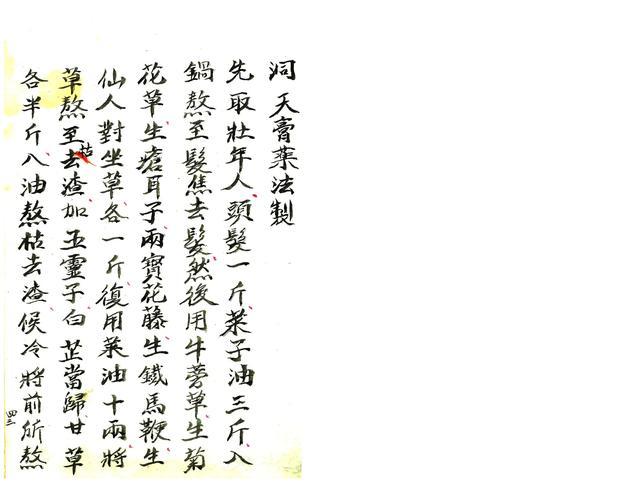 洞天膏藥法製
先取壯年人頭髮一斤菜子油三斤入
鍋熬至髮焦去髮然後用牛蒡草生菊
花草生瘡耳子兩寳花藤生鐵馬鞭生
仙人對坐草各一斤復用菜油十兩將
草熬至枯去渣加玉靈子白芷當歸甘草
各半斤入油熬枯去渣候冷將前所熬
四三